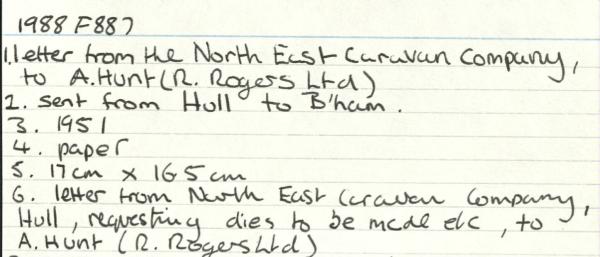 1988 F887
1. letter from the North East Caravan Company,
to A. Hunt (R. Rogers Ltd)
2. sent from Hull to B'ham.
3. 1951
4. paper
5. 17cm x 16 5 cm
6. letter from North East Caravan Company,
Hull, requesting dies to be made etc, to
A. Hunt (R. Rogers Ltd)